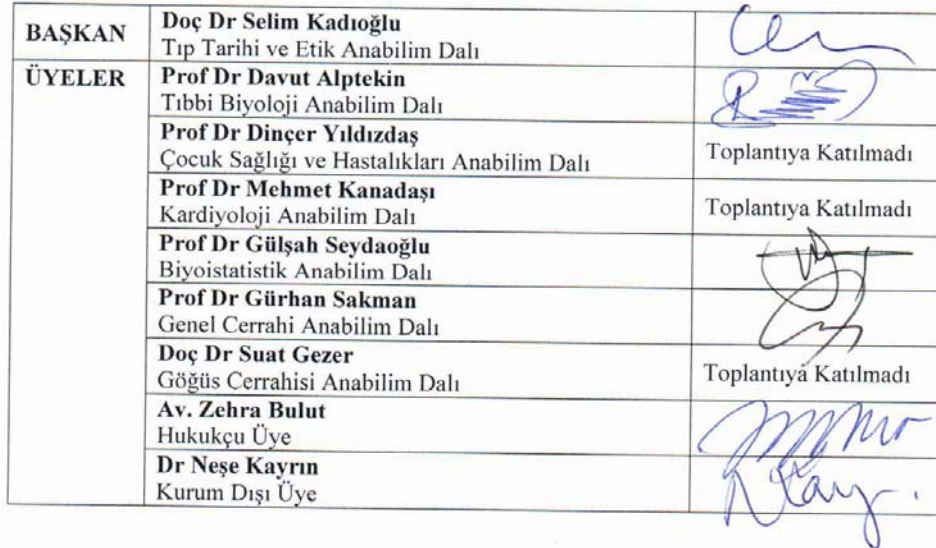 BAŞKAN
Doç Dr Selim Kadıoğlu
Tıp Tarihi ve Etik Anabilim Dalı
ÜYELER
Prof Dr Davut Alptekin
Tıbbi Biyoloji Anabilim Dalı
Prof Dr Dinçer Yıldızdaş
Çocuk Sağlığı ve Hastalıkları Anabilim Dalı
Toplantıya Katılmadı
Prof Dr Mehmet Kanadaşı
Kardiyoloji Anabilim Dalı
Toplantıya Katılmadı
Prof Dr Gülşah Seydaoğlu
Biyoistatistik Anabilim Dalı
Prof Dr Gürhan Sakman
Genel Cerrahi Anabilim Dalı
Doç Dr Suat Gezer
Göğüs Cerrahisi Anabilim Dalı
Toplantıya Katılmadı
Av. Zehra Bulut
Hukukçu Üye
Dr Neşe Kayrın
Kurum Dışı Üye